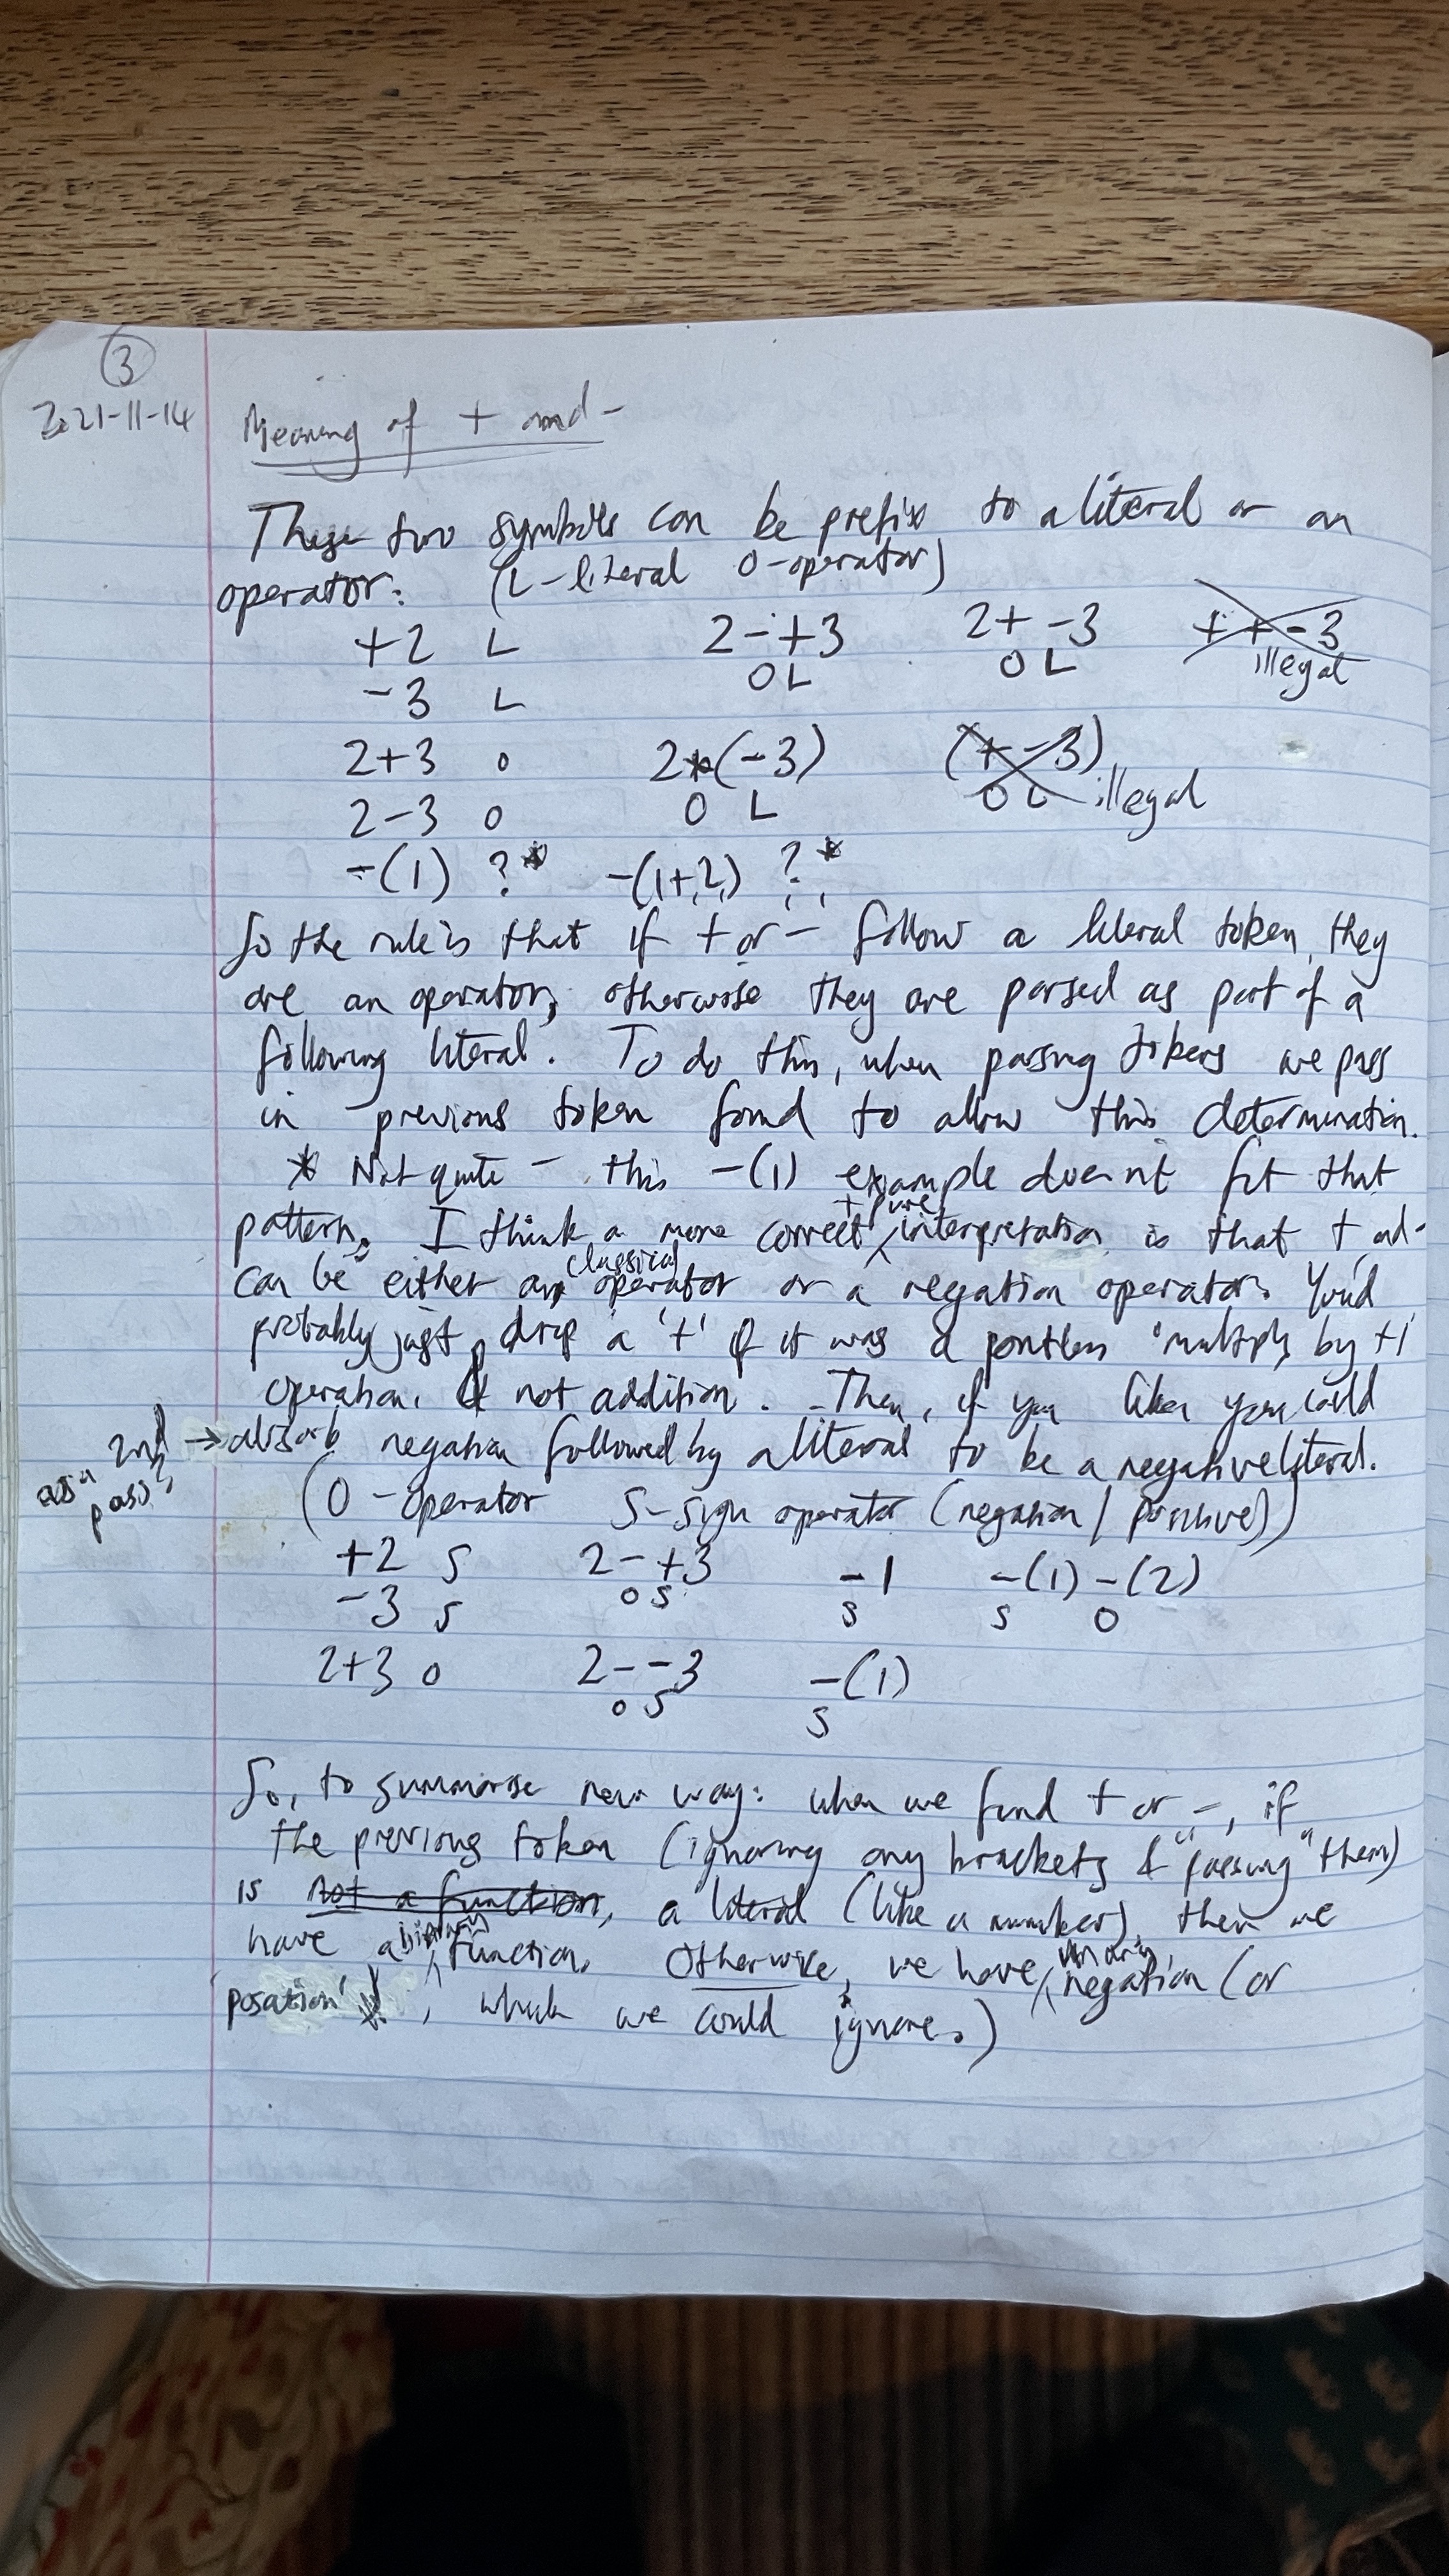 3
2021-11-14
Meaning of + and -
These two symbols can be prefix to a literal or an
operator: (L-literal O-operator)
+2 L 2-+3 2+ -3 + + -3
-3 L O L O L illegal
2+3 O 2*(-3) (+ -3)
2-3 O O L O L illegal
-(1) ?* -(1+2) ?*
So the rule is that if + or - follow a literal token, they
are an operator, otherwise they are parsed as part of a
following literal. To do this, when parsing tokens we pass
in previous token found to allow this determination.
* Not quite - this -(1) example doesn't fit that
pattern. I think a more correct + pure interpretation is that + and -
can be either a classical operator or a negation operator. You'd
probably just drop a '+' if it was a pointless 'multiply by +1'
operation, & not addition. Then, if you like you could
as a 2nd pass → absorb negation followed by a literal to be a negative literal.
(O-operator S-sign operator (negation / positive))
+2 S 2-+3 -1 -(1) -(2)
-3 S O S S S O
2+3 O 2--3 -(1)
O S S
So, to summarise new way: when we find + or -, if
the previous token (ignoring any brackets & "passing" them)
is not a function, a literal (like a number), then we
have a binary function. Otherwise, we have unary negation (or
'posation', which we could ignore.)